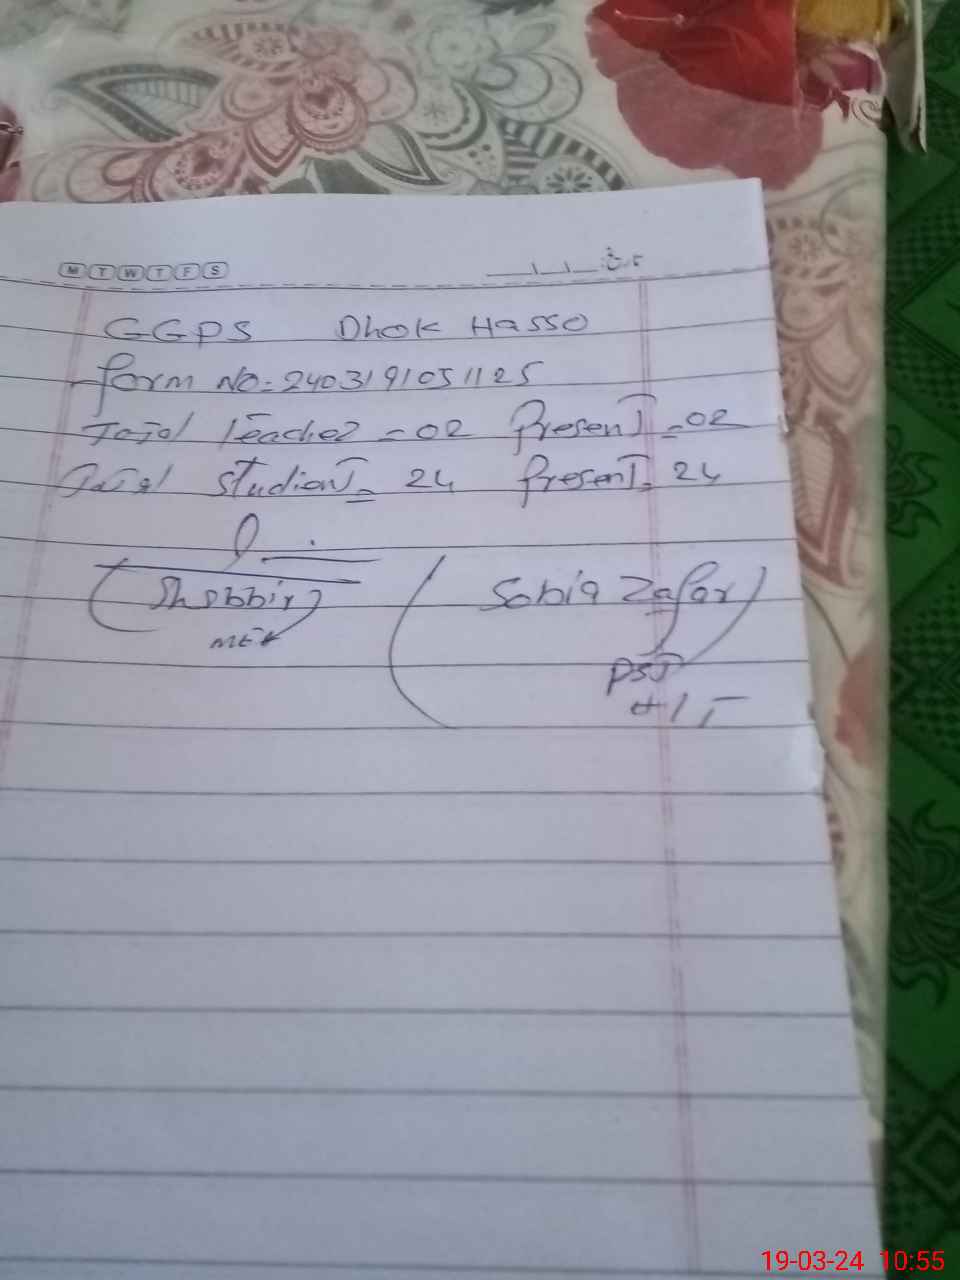 M T W T F S
تاریخ
GGPS Dhok Hasso
Form No. 2403191051125
Total Teacher = 02 Present = 02
Total Studient = 24 Present = 24
Shabbir
Sobia Zafar
PST
19-03-24 10:55